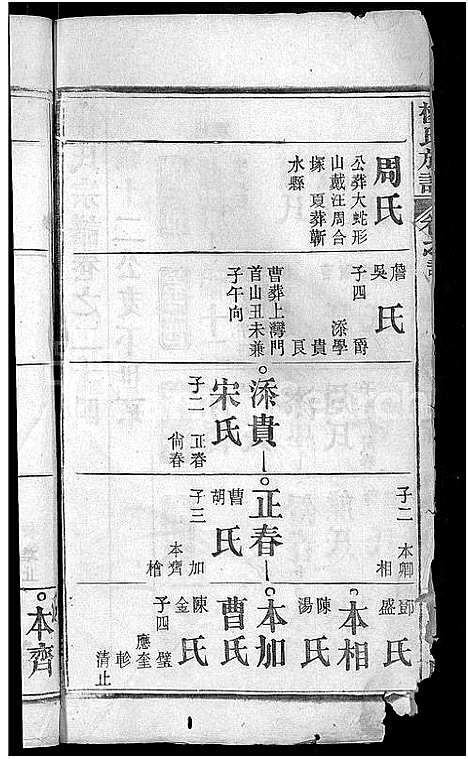 周氏
公葬大蛇形
山戴汪周合
塚夏葬蘄
水縣
詹吳氏
子四 爵
添學
貴
良
曹葬上灣門
首山丑未兼
子午向
添貴
宋氏
子二 正春
尚春
子二 本卿
相
正春
曹胡氏
子三 加
本齊
檜
鄧盛氏
本相
陳湯氏
本加
曹氏
陳金氏
子四 璧
應奎
軫
清止
本齊